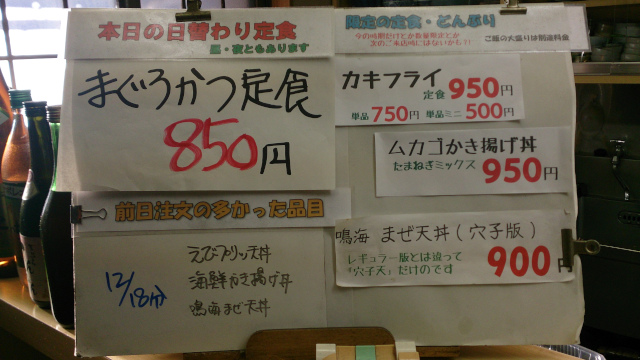 本日の日替わり定食
昼・夜ともあります
まぐろかつ定食
850円
前日注文の多かった品目
12/18分
えびプリッ天丼
海鮮かき揚げ丼
鳴海まぜ天丼
限定の定食・どんぶり
今の時期だけとか数量限定とか
次のご来店時にはないかも?!
ご飯の大盛りは別途料金
カキフライ
定食 950円
単品 750円 単品ミニ 500円
ムカゴかき揚げ丼
たまねぎミックス 950円
鳴海 まぜ天丼(穴子版)
レギュラー版とは違って
「穴子天」だけのです
900円